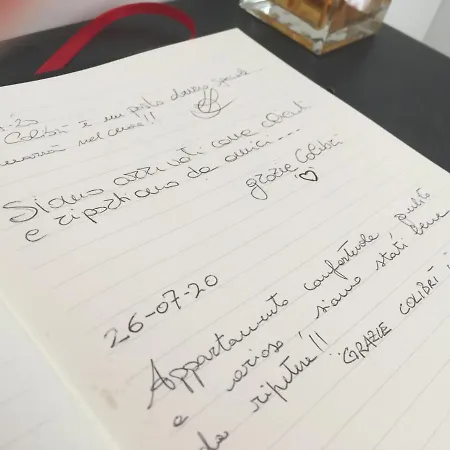 -20
Colibrì è un posto davvero speciale
rimarrà nel cuore!!
Siamo arrivati come clienti
e ripartiamo da amici...
grazie Colibrì
26-07-20
Appartamento confortevole, pulito
e arioso, siamo stati bene
da ripetere!! GRAZIE COLIBRÌ!